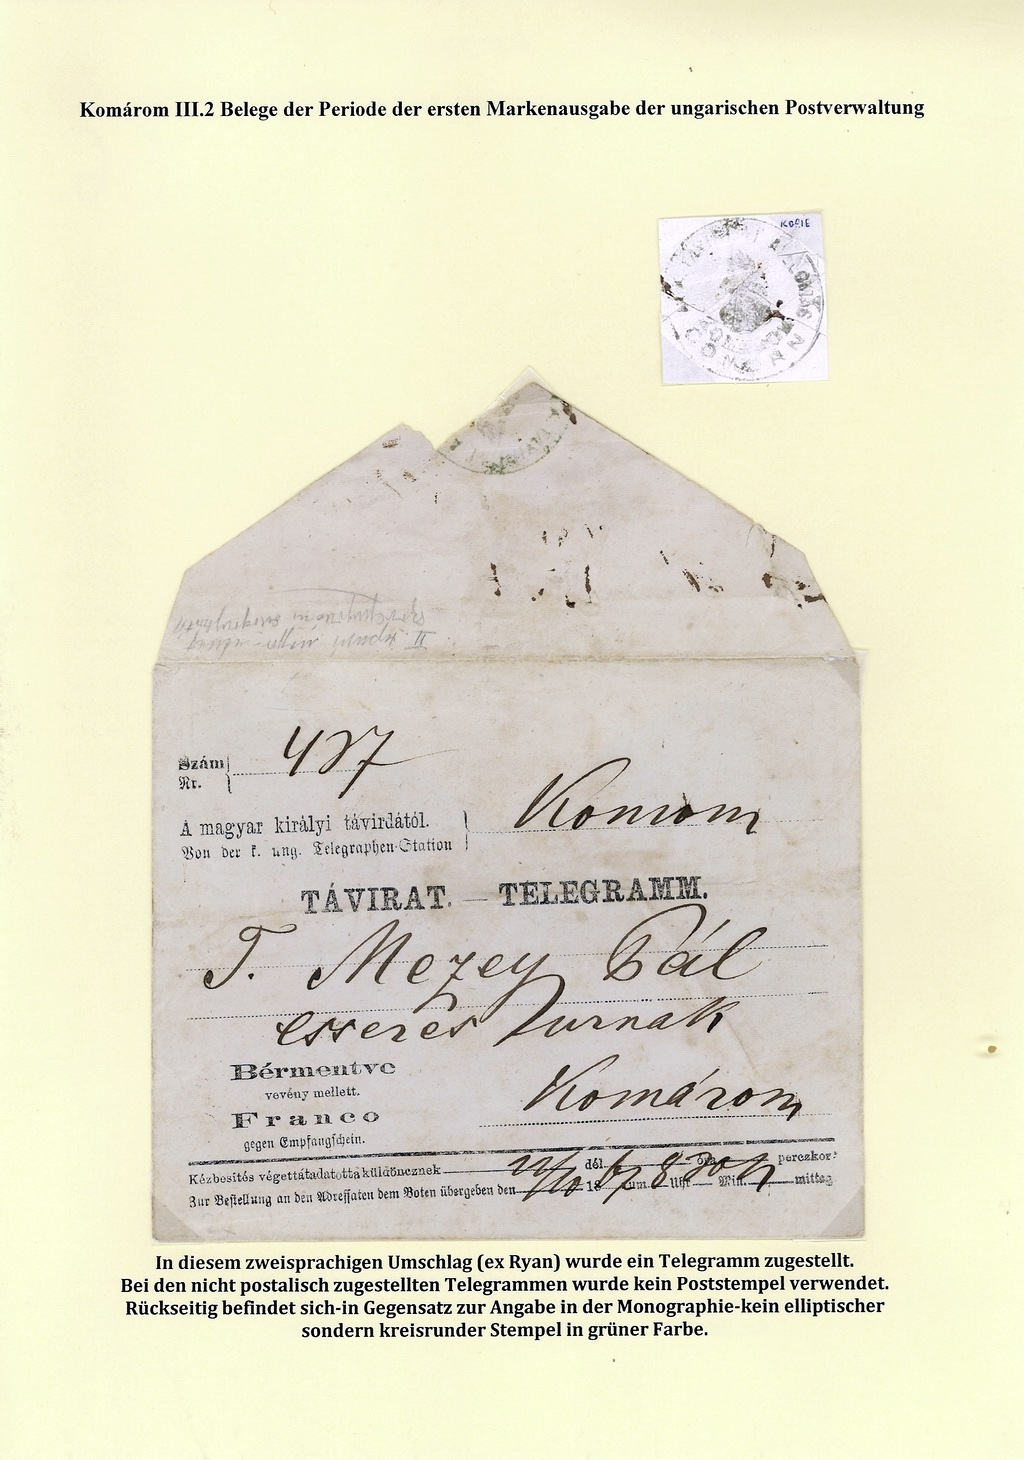 Komárom III.2 Belege der Periode der ersten Markenausgabe der ungarischen Postverwaltung
KOPIE
Szám
Nr.
437
A magyar királyi távirdától.
Von der k. ung. Telegraphen-Station
Komrom
TÁVIRAT. — TELEGRAMM.
T. Mezey Pál
Komárom
Bérmentve
vevény mellett.
Franco
gegen Empfangschein.
Kézbesítés végett átadatott a küldöncznek dél óra perczkor
Zur Bestellung an den Adressaten dem Boten übergeben den 18 um Uhr Min. mittag
In diesem zweisprachigen Umschlag (ex Ryan) wurde ein Telegramm zugestellt.
Bei den nicht postalisch zugestellten Telegrammen wurde kein Poststempel verwendet.
Rückseitig befindet sich-in Gegensatz zur Angabe in der Monographie-kein elliptischer
sondern kreisrunder Stempel in grüner Farbe.